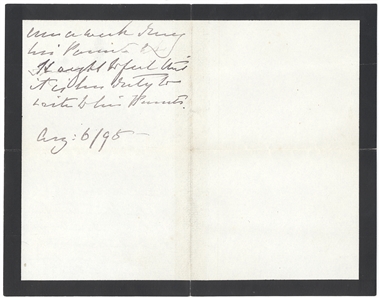 once a week during
his
He ought to feel that
it is his duty to
write to his Parents.
Aug: 6/95